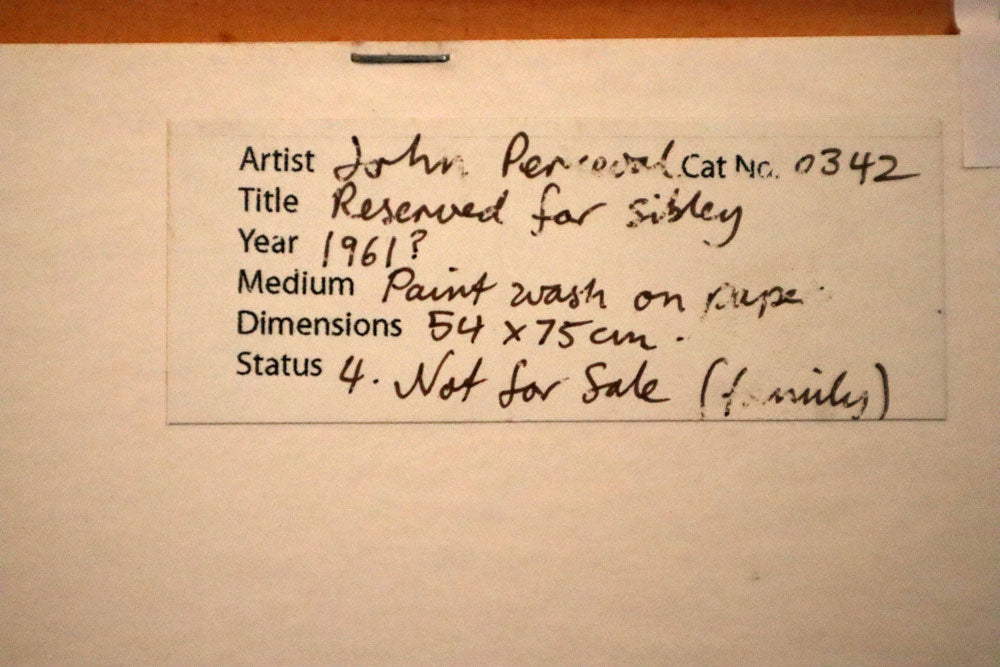 Artist John Perceval Cat No. 0342
Title Reserved for Sibley
Year 1961?
Medium Paint wash on paper
Dimensions 54 x 75 cm.
Status 4. Not for Sale (family)